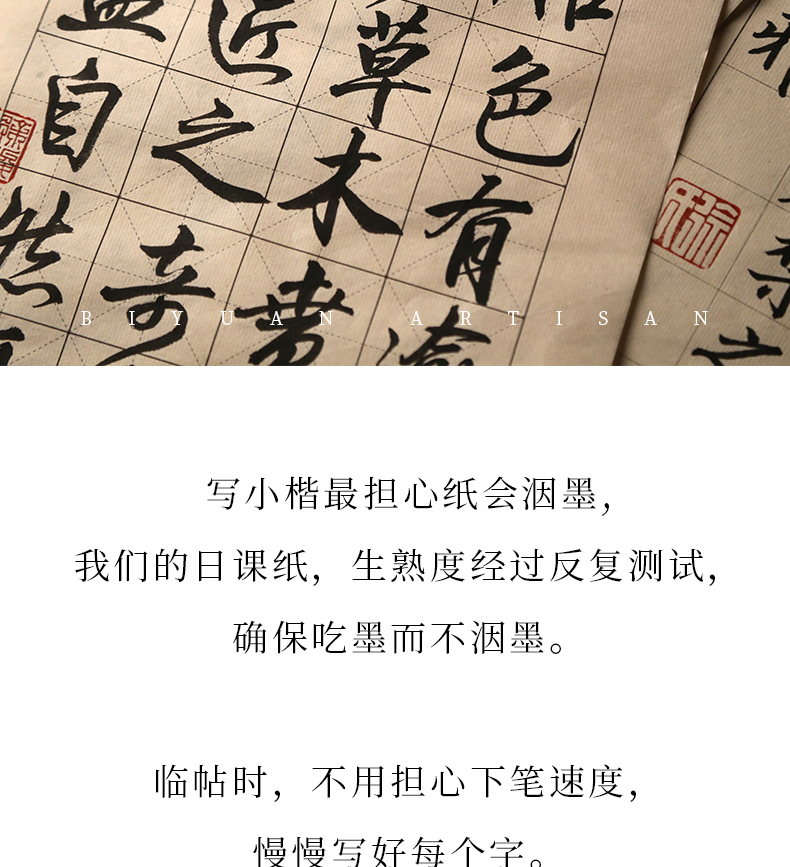 色有
草木賁
匠之奇
自然
之
BIYUAN ARTISAN
写小楷最担心纸会洇墨，
我们的日课纸，生熟度经过反复测试，
确保吃墨而不洇墨。
临帖时，不用担心下笔速度，
慢慢写好每个字。